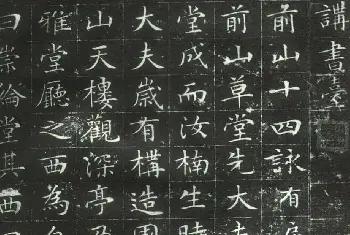 講書臺
前山十四詠有
前山草堂先大
堂成而汝楠生時
大夫歲有構造園
山天樓觀深亭
雅堂聽之西為
曰崇綸堂其西